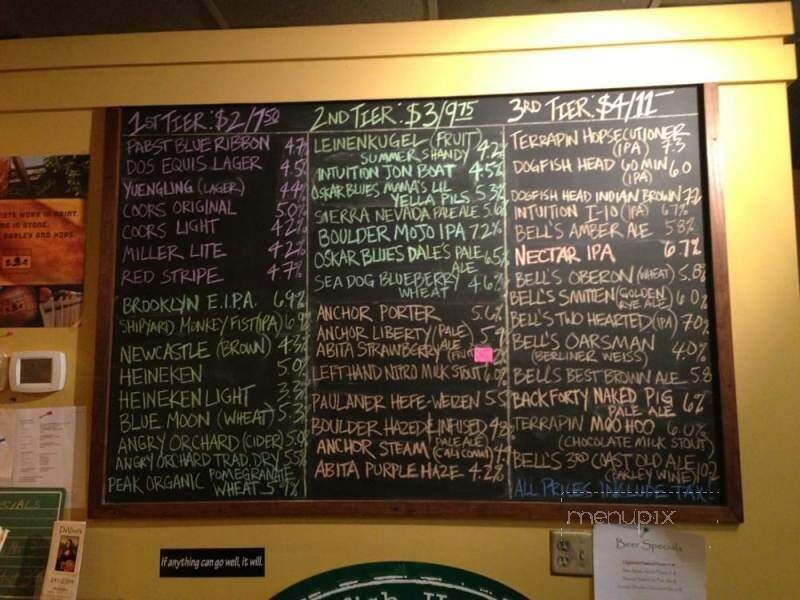 1ST TIER: $2/7.50
PABST BLUE RIBBON 4.7
DOS EQUIS LAGER 4.5%
YUENGLING (LAGER) 4.4%
COORS ORIGINAL 5.0%
COORS LIGHT 4.2%
MILLER LITE 4.2%
RED STRIPE 4.7%
BROOKLYN E.I.P.A. 6.9%
SHIPYARD MONKEY FIST (IPA) 6.9%
NEWCASTLE (BROWN) 4.3%
HEINEKEN 5.0%
HEINEKEN LIGHT 3.3%
BLUE MOON (WHEAT) 5.3%
ANGRY ORCHARD (CIDER) 5.0%
ANGRY ORCHARD TRAD. DRY 5.5%
PEAK ORGANIC POMEGRANATE
WHEAT 5.4%
2ND TIER: $3/9.75
LEINENKUGEL (FRUIT)
SUMMER SHANDY 4.2%
INTUITION JON BOAT 4.5%
OSKAR BLUES MAMA'S LIL
YELLA PILS 5.3%
SIERRA NEVADA PALE ALE 5.6%
BOULDER MOJO IPA 7.2%
OSKAR BLUES DALE'S PALE
ALE 6.5%
SEA DOG BLUEBERRY
WHEAT 4.6%
ANCHOR PORTER 5.6%
ANCHOR LIBERTY (PALE
ALE 5.9
ABITA STRAWBERRY (FRUIT
LEFT HAND NITRO MILK STOUT 6.0%
PAULANER HEFE-WEIZEN 5.5
BOULDER HAZED & INFUSED 4.8%
(PALE ALE)
ANCHOR STEAM (CALI COMMON) 4.9
ABITA PURPLE HAZE 4.2%
3RD TIER: $4/11-
TERRAPIN HOPSECUTIONER
(IPA) 7.3
DOGFISH HEAD 60 MIN 6.0
(IPA)
DOGFISH HEAD INDIAN BROWN 7.2
INTUITION I-10 (IPA) 6.7%
BELL'S AMBER ALE 5.8%
NECTAR IPA 6.7%
BELL'S OBERON (WHEAT) 5.8%
BELL'S SMITTEN (GOLDEN
RYE ALE) 6.0%
BELL'S TWO HEARTED (IPA) 7.0%
BELL'S OARSMAN
(BERLINER WEISS) 4.0%
BELL'S BEST BROWN ALE 5.8
BACK FORTY NAKED PIG
PALE ALE 6%
TERRAPIN MOO HOO 6.0%
(CHOCOLATE MILK STOUT)
BELL'S 3RD COAST OLD ALE
(BARLEY WINE) 10.2
ALL PRICES INCLUDE TAX!
menupix
If anything can go well, it will.
Beer Specials